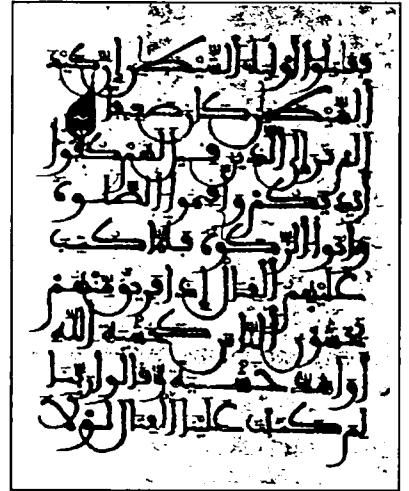 فقتلوا اوليا الشيطن ان كيد
الشيطن كان ضعيفا
الم تر الى الذين قيل لهم كفوا
ايديكم واقيموا الصلوة
واتوا الزكوة فلما كتب
عليهم القتال اذا فريق منهم
يخشون الناس كخشية الله
او اشد خشية وقالوا ربنا
لم كتبت علينا القتال لولا